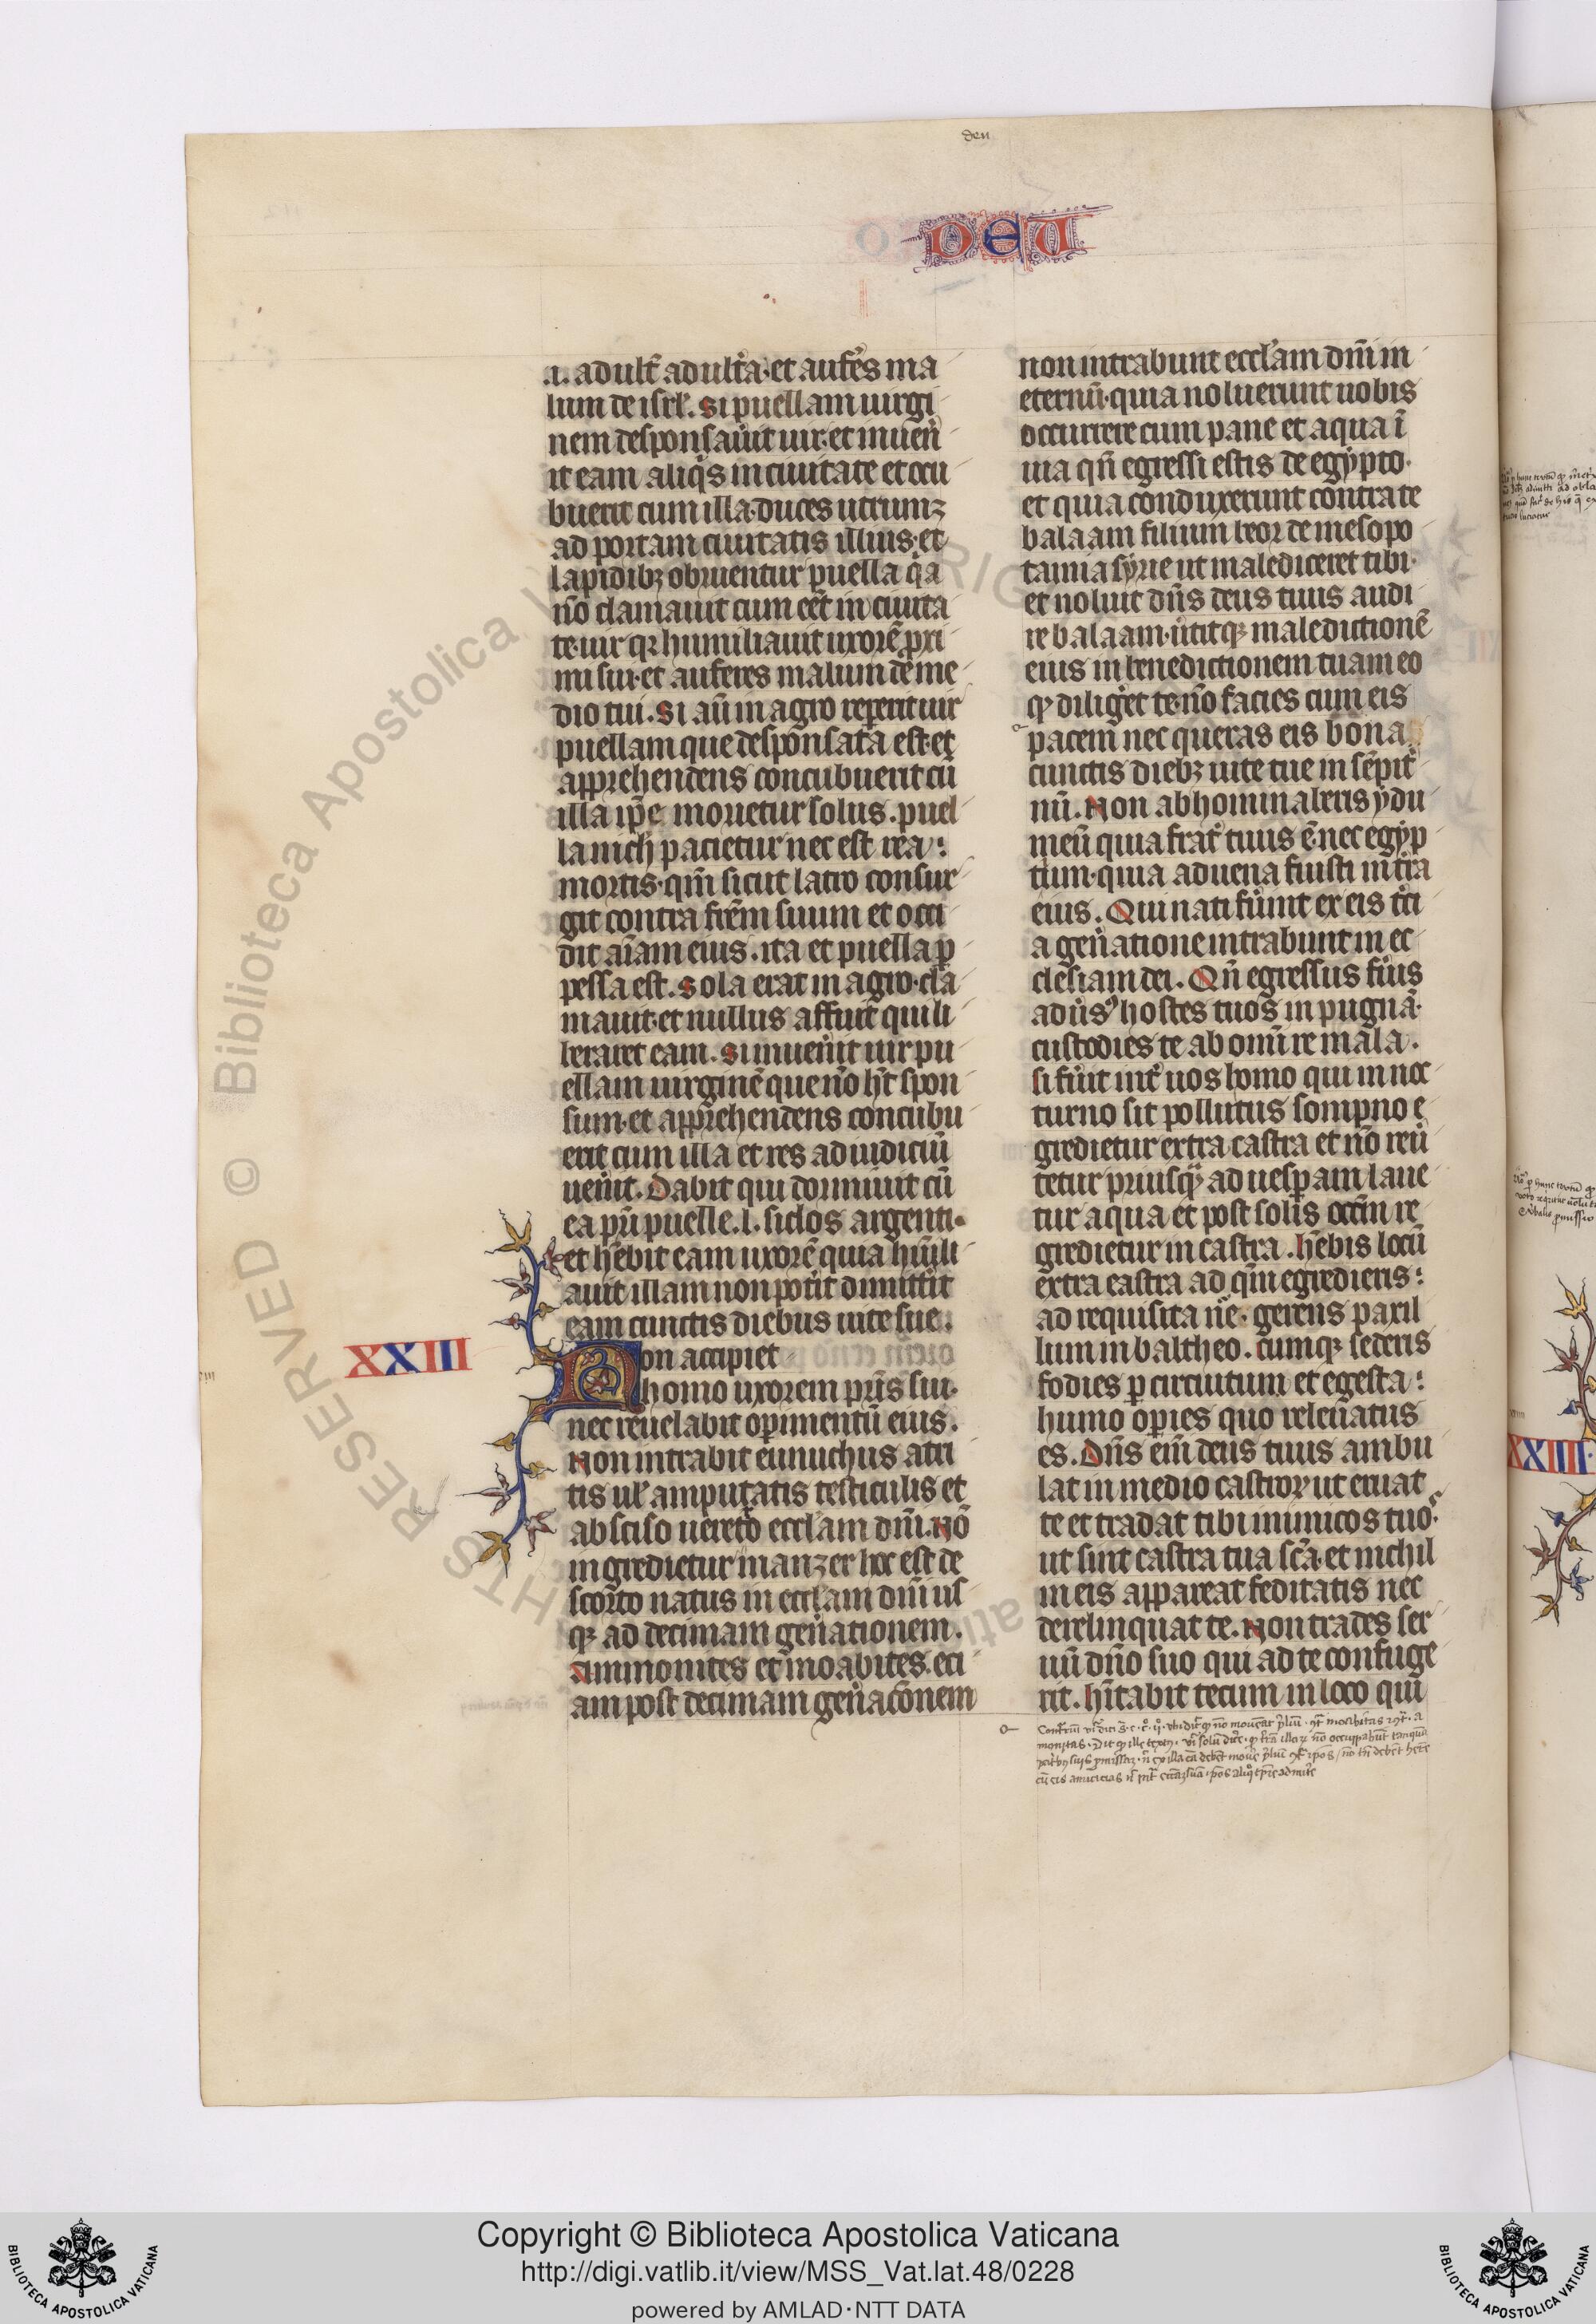 deu
DEU
.i. adult̄ adult̓a·et aufe̓s ma
lum de isrl̓. Si puellam uirgi
nem desponsau̓it uir·et inuen̓
it eam aliq̓s in ciuitate et ocu
buerit cum illa·duces utrumꝫ
ad portam ciuitatis illius·et
lapidibꝫ obruentur puella q̓a
nō clamauit cum eēt in ciuita
te·uir qꝛ humiliauit uxorē ꝓxi
mi sui·et auferes malum de me
dio tui. Si aūt in agro reperit uir
puellam que desponsata est·et
apprehendens concubuerit cū
illa ip̄e morietur solus. puel
la nich̓ pacietur nec est rea:
mortis·qm̄ sicut latro consur
git contra frēm suum et occi
dit aīam eius. ita et puella ꝑ
pessa est. Sola erat in agro·cla
mauit·et nullus affuit qui li
beraret eam. Si inuen̓it uir pu
ellam uirginē que nō hēt spon
sum·et app̓rehendens concubu
erit cum illa et res ad iudiciū
uen̓it. Dabit qui dormiuit cū
ea pr̄i puelle .l. siclos argenti.
et hēbit eam uxorē quia hūili
auit illam non pot̓it dimitt̓e
eam cunctis diebus uite sue.
XXIII
Non accipiet
homo uxorem pr̄is sui·
nec reuelabit op̓imentū eius.
Non intrabit eunuchus atri
tis ul̓ amputatis testiculis et
absciso ueretro eccl̓am dn̄i. Nō
ingredietur manzer hoc est de
scorto natus in eccl̓am dn̄i us
qꝫ ad decimam gen̓ationem.
Ammonites et moabites. eci
am post decimam gen̓acōnem
non intrabunt eccl̓am dn̄i in
eternū·quia noluerunt uobis
occurrere cum pane et aqua ī
uia qn̄ egressi estis de egypto·
et quia conduxerunt contra te
balaam filium beor de mesopo
tamia syrie ut malediceret tibi·
et noluit dn̄s deus tuus audi
re balaam·u̓titqꝫ maledictionē
eius in benedictionem tuam eo
ꝙ dilig̓et te·nō facies cum eis
pacem nec queras eis bona
cunctis diebꝫ uite tue in sēpit̓
nū. Non abhominaberis ydu
meū quia frat̓ tuus ē·nec egyp
tium·quia aduena fuisti in t̓ra
eius. Qui nati fu̓int ex eis t̓ci
a gen̓atione intrabunt in ec
clesiam dei. Qn̄ egressus fu̓is
adu̓sꝰ hostes tuos in pugnā·
custodies te ab omī re mala.
si fu̓it int̓ uos homo qui in noc
turno sit pollutus sompno e
gredietur extra castra et nō reu̓
tetur priusqꝫ ad uesꝑam laue
tur aqua et post solis occm̄ re
gredietur in castra. hēbis locū
extra castra ad qm̄ egredieris:
ad requisita nē· gerens paxil
lum in baltheo. cumqꝫ sederis
fodies ꝑ circuitum et egesta:
humo op̓ies quo releuatus
es. Dn̄s em̄ deus tuus ambu
lat in medio castroꝝ ut eruat
te et tradat tibi inimicos tuos
ut sint castra tua sc̄a·et nichil
in eis appareat feditatis nec
derelinquat te. Non trades ser
uū dn̄o suo qui ad te confuge
rit. hītabit tecum in loco qui
XXIIII
Copyright © Biblioteca Apostolica Vaticana
http://digi.vatlib.it/view/MSS_Vat.lat.48/0228
powered by AMLAD·NTT DATA
BIBLIOTECA APOSTOLICA VATICANA
BIBLIOTECA APOSTOLICA VATICANA